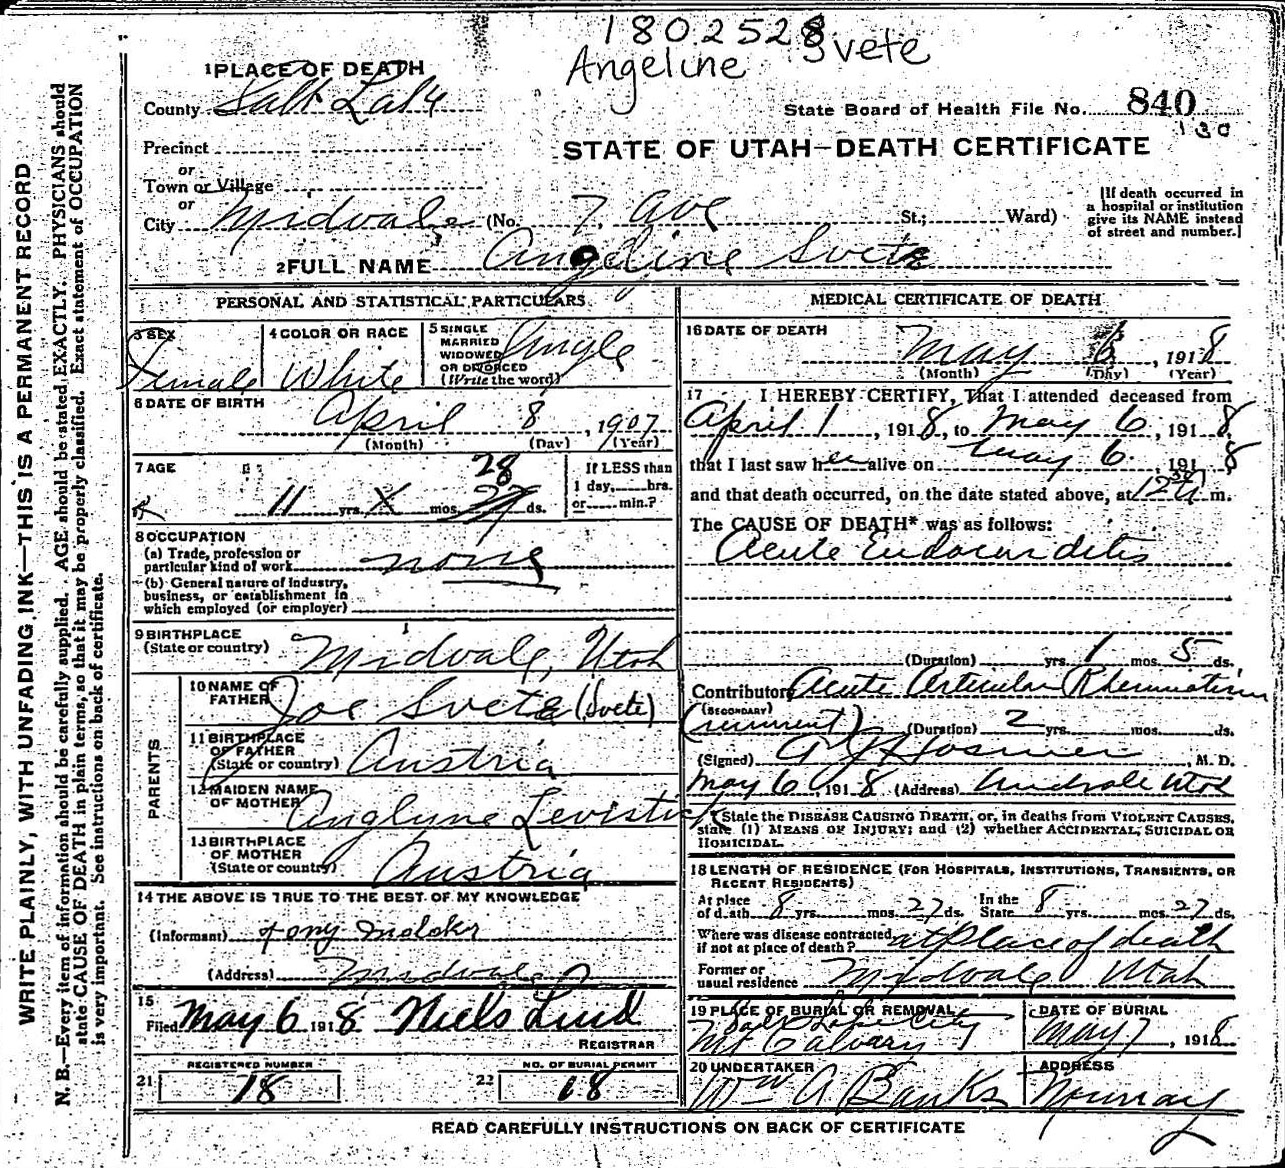 1802528
Angeline Svete
1 PLACE OF DEATH
County Salt Lake
State Board of Health File No. 840
130
STATE OF UTAH—DEATH CERTIFICATE
Precinct
or
Town or Village
or
City Midvale (No. 7. Ave St.; Ward)
[If death occurred in
a hospital or institution
give its NAME instead
of street and number.]
2 FULL NAME Angeline Svete
PERSONAL AND STATISTICAL PARTICULARS
3 SEX Female
4 COLOR OR RACE White
5 SINGLE
MARRIED
WIDOWED
OR DIVORCED
(Write the word) Single
6 DATE OF BIRTH
April 8, 1907
(Month) (Day) (Year)
7 AGE
28
11 yrs. X mos. 27 ds.
If LESS than
1 day, hrs.
or min.?
8 OCCUPATION
(a) Trade, profession or
particular kind of work none
(b) General nature of industry,
business, or establishment in
which employed (or employer)
9 BIRTHPLACE
(State or country) Midvale, Utah
PARENTS
10 NAME OF
FATHER Joe Svete (Svete)
11 BIRTHPLACE
OF FATHER
(State or country) Austria
12 MAIDEN NAME
OF MOTHER Anglyne Levistic
13 BIRTHPLACE
OF MOTHER
(State or country) Austria
14 THE ABOVE IS TRUE TO THE BEST OF MY KNOWLEDGE
(Informant) Tony
(Address) Midvale
15
Filed May 6 1918 Niels Lind
REGISTRAR
REGISTERED NUMBER
21 18
NO. OF BURIAL PERMIT
22 18
MEDICAL CERTIFICATE OF DEATH
16 DATE OF DEATH
May 6, 1918
(Month) (Day) (Year)
17 I HEREBY CERTIFY, That I attended deceased from
April 1, 1918, to May 6, 1918,
that I last saw her alive on May 6, 1918
and that death occurred, on the date stated above, at 12 m.
The CAUSE OF DEATH* was as follows:
Acute Endocarditis
(Duration) yrs. 1 mos. 5 ds.
Contributory Acute Articular Rheumatism
(SECONDARY)
(recurrent) (Duration) 2 yrs. mos. ds.
(Signed) A J Hosmer, M. D.
May 6, 1918 (Address) Midvale Utah
*State the DISEASE CAUSING DEATH, or, in deaths from VIOLENT CAUSES,
state (1) MEANS OF INJURY; and (2) whether ACCIDENTAL, SUICIDAL OR
HOMICIDAL.
18 LENGTH OF RESIDENCE (FOR HOSPITALS, INSTITUTIONS, TRANSIENTS, OR
RECENT RESIDENTS)
At place
of death 8 yrs. mos. 27 ds. In the
State 8 yrs. mos. 27 ds.
Where was disease contracted,
if not at place of death? at place of death
Former or
usual residence Midvale Utah
19 PLACE OF BURIAL OR REMOVAL
Salt Lake City
Mt Calvary
DATE OF BURIAL
May 7, 1918
20 UNDERTAKER
Wm A Banks
ADDRESS
Murray
READ CAREFULLY INSTRUCTIONS ON BACK OF CERTIFICATE
WRITE PLAINLY, WITH UNFADING INK—THIS IS A PERMANENT RECORD
N. B.—Every item of information should be carefully supplied. AGE should be stated EXACTLY. PHYSICIANS should
state CAUSE OF DEATH in plain terms, so that it may be properly classified. Exact statement of OCCUPATION
is very important. See instructions on back of certificate.